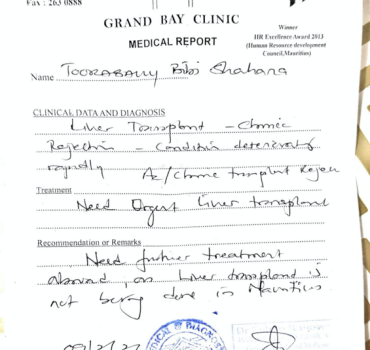 Fax : 263 0888
GRAND BAY CLINIC
MEDICAL REPORT
Winner
HR Excellence Award 2013
(Human Resource development
Council,Mauritius)
Name TOORABALLY Bibi Shahana
CLINICAL DATA AND DIAGNOSIS
Liver Transplant - Chronic
Rejection - Condition deteriorating
rapidly Ac/Chronic transplant Rejec
Treatment
Need Urgent liver transplant
Recommendation or Remarks
Need further treatment
abroad, as liver transplant is
not being done in Mauritius
MEDICAL & DIAGNOS